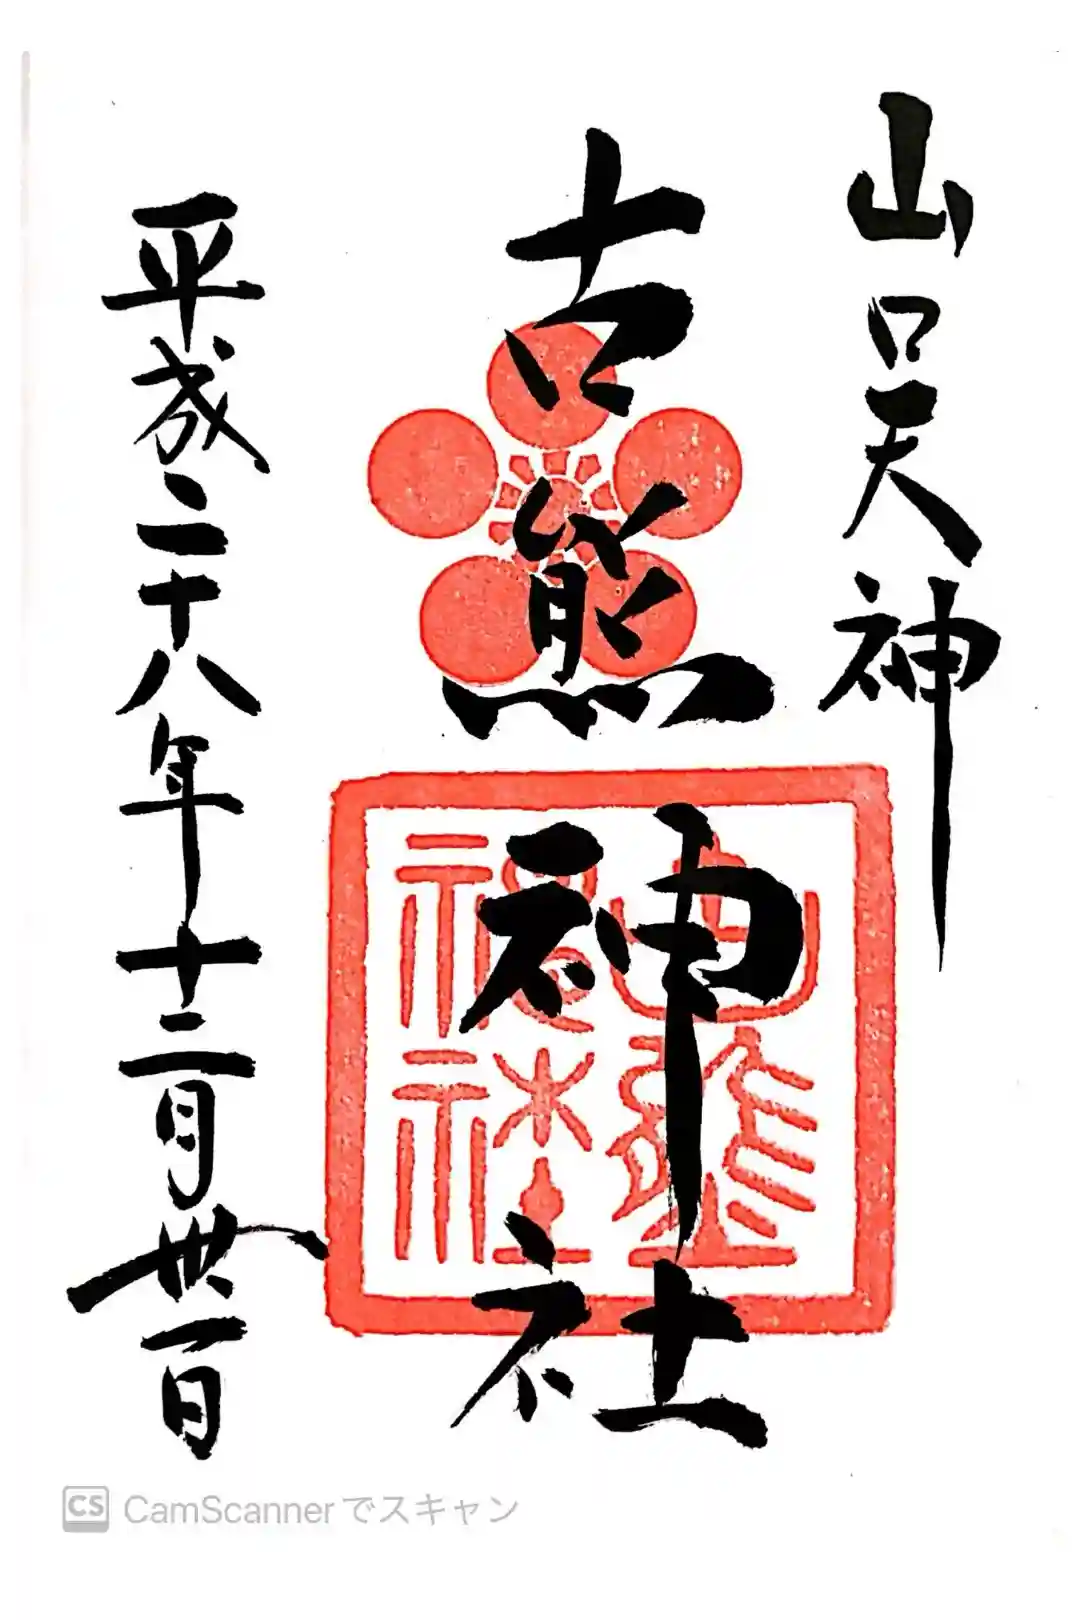 山口天神
古熊神社
古熊神社
平成二十八年十二月卅一日
CS CamScannerでスキャン